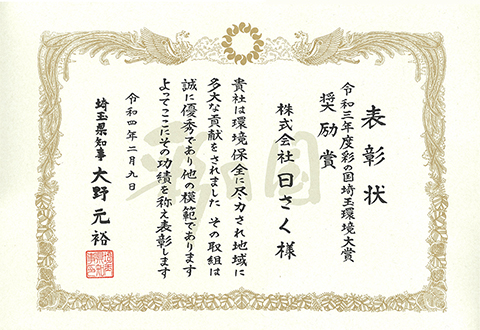 表彰状
令和三年度彩の国埼玉環境大賞
奨励賞
株式会社日さく様
貴社は環境保全に尽力され地域に
多大な貢献をされました その取組は
誠に優秀であり他の模範であります
よってここにその功績を称え表彰します
令和四年二月九日
埼玉県知事 大野元裕